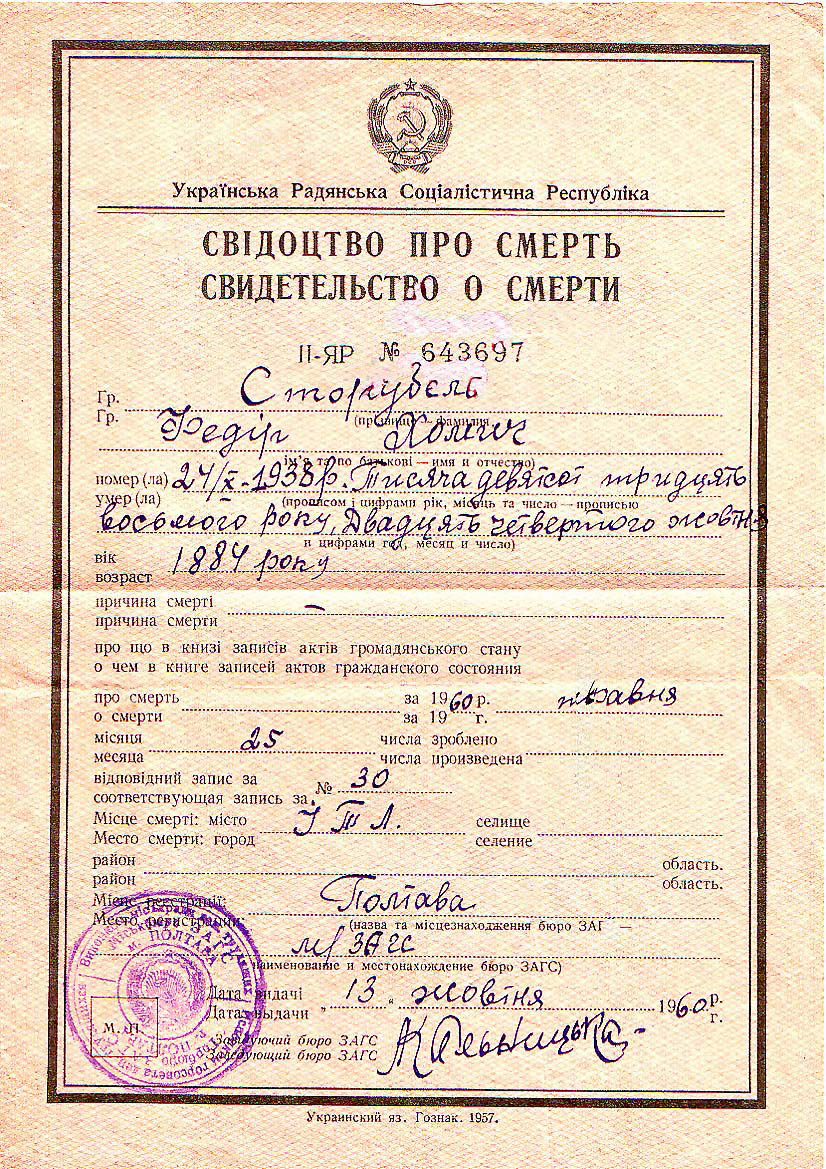 Українська Радянська Соціалістична Республіка
СВІДОЦТВО ПРО СМЕРТЬ
СВИДЕТЕЛЬСТВО О СМЕРТИ
ІІ-ЯР № 643697
Гр. Сторубель
Гр. (прізвище — фамилия)
Федір Хомич
ім'я та по батькові — имя и отчество)
помер(ла) 24/X-1938р. Тисяча девятсот тридцять
умер (ла) (прописом і цифрами рік, місяць та число — прописью
восьмого року, Двадцять четвертого жовтня
и цифрами год, месяц и число)
вік 1884 року
возраст
причина смерті —
причина смерти
про що в книзі записів актів громадянського стану
о чем в книге записей актов гражданского состояния
про смерть за 1960 р. травня
о смерти за 19 г.
місяця 25 числа зроблено
месяца числа произведена
відповідний запис за № 30
соответствующая запись за
Місце смерті: місто І Т Л. селище
Место смерти: город селение
район область.
район область.
Місце реєстрації: Полтава
Место регистрации: (назва та місцезнаходження бюро ЗАГ —
м/ЗАГС
наименование и местонахождение бюро ЗАГС)
Дата видачі 13 " жовтня 1960 р.
Дата выдачи " г.
М. П.
м. ПОЛТАВА
Завідуючий бюро ЗАГС
Заведующий бюро ЗАГС
Украинский яз. Гознак. 1957.